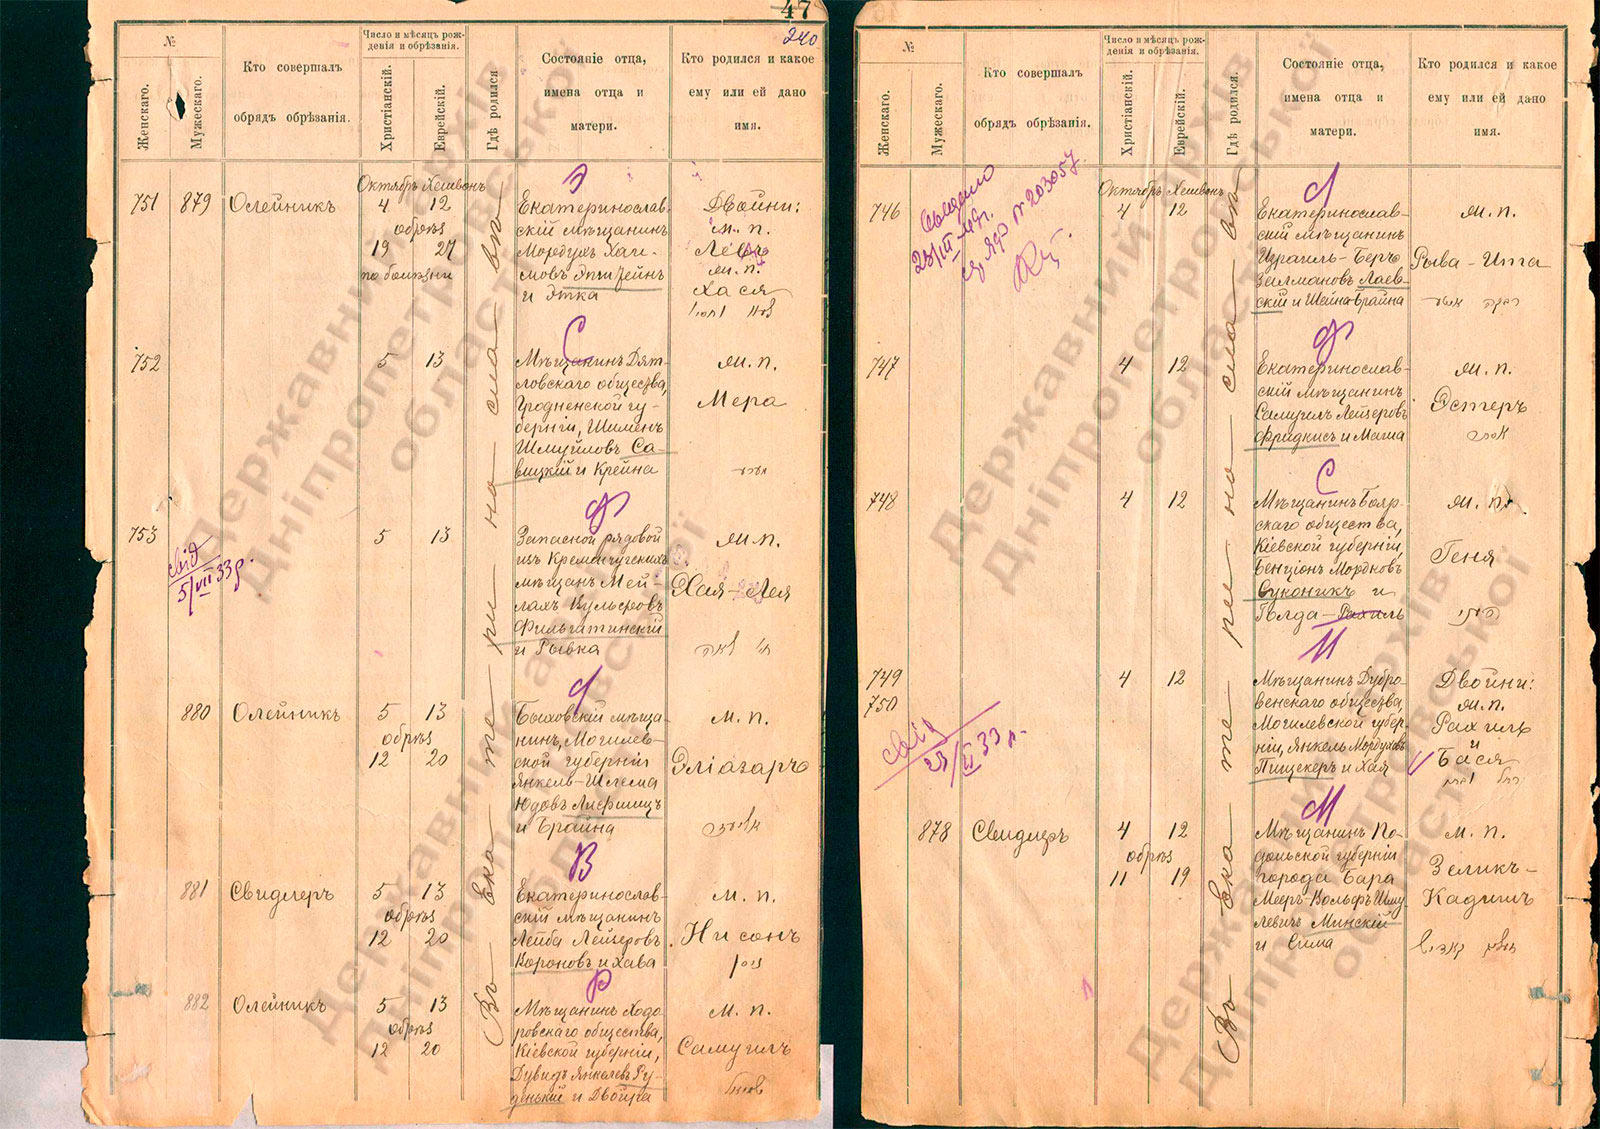 47
240
№
Женскаго.
Мужескаго.
Кто совершалъ
обрядъ обрѣзанія.
Число и мѣсяцъ рож-
денія и обрѣзанія.
Христіанскій.
Еврейскій.
Гдѣ родился
Состояніе отца,
имена отца и
матери.
Кто родился и какое
ему или ей дано
имя.
Октябрь Хешвонъ
Въ Екатеринославѣ
751 879 Олейникъ 4 12
обрѣз
19 27
по болѣзни
Э
Екатеринослав-
скій мѣщанинъ
Мордухъ Хаи-
мовъ Эпштейнъ
и Этка
Двойни:
м. п.
Лейбъ
ж. п.
Хася
752 5 13
С
Мѣщанинъ Дят-
ловскаго общества,
Гродненской гу-
берніи, Шименъ
Шмуйловъ Са-
вицкій и Крейна
ж. п.
Мера
753 5 13
свід
5/VII 33 р.
Ф
Запасной рядовой
изъ Кременчугскихъ
мѣщанъ Мей-
лахъ Вульфовъ
Фильштинскій
и Рывка
ж. п.
Хая-Лея
880 Олейникъ 5 13
обрѣз
12 20
Л
Быховскій мѣща-
нинъ, Могилев-
ской губерніи
Янкель-Шлема
Юдовъ Лифшицъ
и Брайна
м. п.
Эліазаръ
881 Свидлеръ 5 13
обрѣз
12 20
В
Екатеринослав-
скій мѣщанинъ
Лейба Лейзеровъ
Вороновъ и Хава
м. п.
Нисонъ
ניסן
882 Олейникъ 5 13
обрѣз
12 20
Р
Мѣщанинъ Ходо-
ровскаго общества,
Кіевской губерніи,
Дувидъ Янкелевъ Ру-
денькій и Двойра
м. п.
Самуилъ
№
Женскаго.
Мужескаго.
Кто совершалъ
обрядъ обрѣзанія.
Число и мѣсяцъ рож-
денія и обрѣзанія.
Христіанскій.
Еврейскій.
Гдѣ родился.
Состояніе отца,
имена отца и
матери.
Кто родился и какое
ему или ей дано
имя.
Октябрь Хешвонъ
Въ Екатеринославѣ
746 4 12
№ 203057
Л
Екатеринослав-
скій мѣщанинъ
Израиль-Беръ
Зелмановъ Лаев-
скій и Шейна-Брайна
ж. п.
Рыва-Ита
747 4 12
Ф
Екатеринослав-
скій мѣщанинъ
Самуилъ Лейзеровъ
Фридкисъ и Маша
ж. п.
Эстеръ
748 4 12
С
Мѣщанинъ Бояр-
скаго общества,
Кіевской губерніи,
Бенціонъ Мордковъ
Суконикъ и
Голда-Рахиль
ж. п.
Геня
749
750
4 12
свід
23/VI 33 р.
П
Мѣщанинъ Дубро-
венскаго общества,
Могилевской губер-
ніи, Янкель Мордуховъ
Пищекеръ и Хая
Двойни:
ж. п.
Рахиль
и
Бася
878 Свидлеръ 4 12
обрѣз
11 19
М
Мѣщанинъ По-
дольской губерніи
города Бара
Мееръ-Вольфъ Шму-
левичъ Минскій
и Сима
м. п.
Зеликъ-
Кадишъ
Державний архів
Дніпропетровської
області